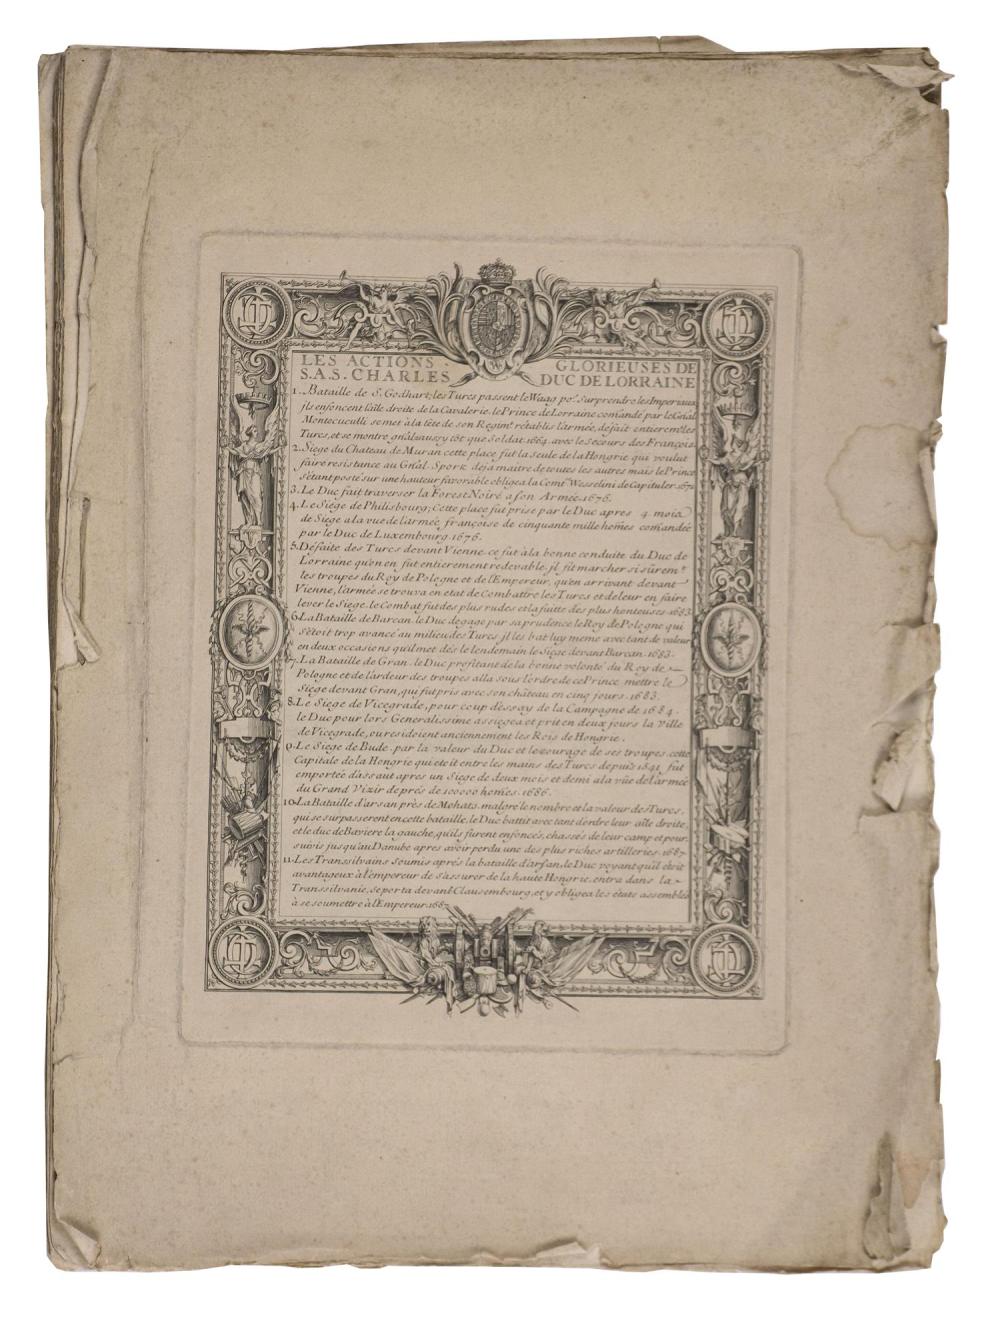 LES ACTIONS GLORIEUSES DE
S.A.S. CHARLES DUC DE LORRAINE
1. Bataille de S. Godhart; les Turcs passent le Waag po.r Surprendre les Imperiaux,
jls enfoncent l'aîle droite de la Cavalerie, le Prince de Lorraine comãndé par le Gñal
Montecuculli se met à la tête de son Regim.t rétablis l'armée, defait entierem.t les
Turcs, et se montre gñal aussy tôt que Soldat. 1664. avec le secours des François.
2. Siége du Chateau de Muran cette place fut la seule de la Hongrie qui voulut
faire resistance au Gñal Sport deja maitre de toutes les autres mais le Prince
s'étant posté sur une hauteur favorable obligea la Comt.e Wesselini de Capituler. 1670
3. Le Duc fait traverser la Forest Noire a son Armée. 1676.
4. Le Siége de Philisbourg; Cette place fut prise par le Duc apres 4 mois
de Siege a la vue de l'armée françoise de cinquante mille hom̃es com̃andée
par le Duc de Luxembourg. 1676.
5. Défaite des Turcs devant Vienne ce fut à la bonne conduite du Duc de
Lorraine qu'on en fut entierement redevable, jl fit marcher si sûrem.t
les troupes du Roy de Pologne et de l'Empereur, qu'en arrivant devant
Vienne, l'armée se trouva en etat de Combattre les Turcs et de leur en faire
lever le Siege, le Combat fut des plus rudes et la fuitte des plus honteuses. 1683
6. La Bataille de Barcan. le Duc degage par sa prudence le Roy de Pologne qui
s'étoit trop avancé au milieu des Turcs jl les bat luy meme avec tant de valeur
en deux occasions qu'il met dés le lendemain le Siége devant Barcan. 1683.
7. La Bataille de Gran. le Duc profitant de la bonne volonté du Roy de
Pologne et de l'ardeur des troupes alla sous l'ordre de ce Prince mettre le
Siége devant Gran, qui fut pris avec son château en cinq jours. 1683.
8. Le Siege de Vicegrade, pour coup d'essay de la Campagne de 1684.
le Duc pour lors Generalissime assiegea et prit en deux jours la Ville
de Vicegrade, ou residoient anciennement les Rois de Hongrie.
9. Le Siege de Bude. par la valeur du Duc et le courage de ses troupes, cette
Capitale de la Hongrie qui etoit entre les mains des Turcs depuis 1541, fut
emportée d'assaut apres un Siege de deux mois et demi a la vûe de l'armée
du Grand Vizir de prés de 100000 hom̃es. 1686.
10. La Bataille d'arsan près de Mohats, malgré le nombre et la valeur des Turcs,
qui se surpasserent en cette bataille, le Duc battit avec tant d'ordre leur aîle droite,
et le duc de Baviere la gauche, qu'ils furent enfoncés, chassés de leur camp et pour
suivis jusqu'au Danube apres avoir perdu une des plus riches artilleries. 1687
11. Les Transsilvains Soumis aprés la bataille d'arsan, le Duc voyant qu'il etoit
avantageux à l'empereur de s'assurer de la haute Hongrie, entra dans la
Transsilvanie, se porta devant Clausembourg, et y obligea les états assemblés
à se soumettre à l'Empereur. 1687